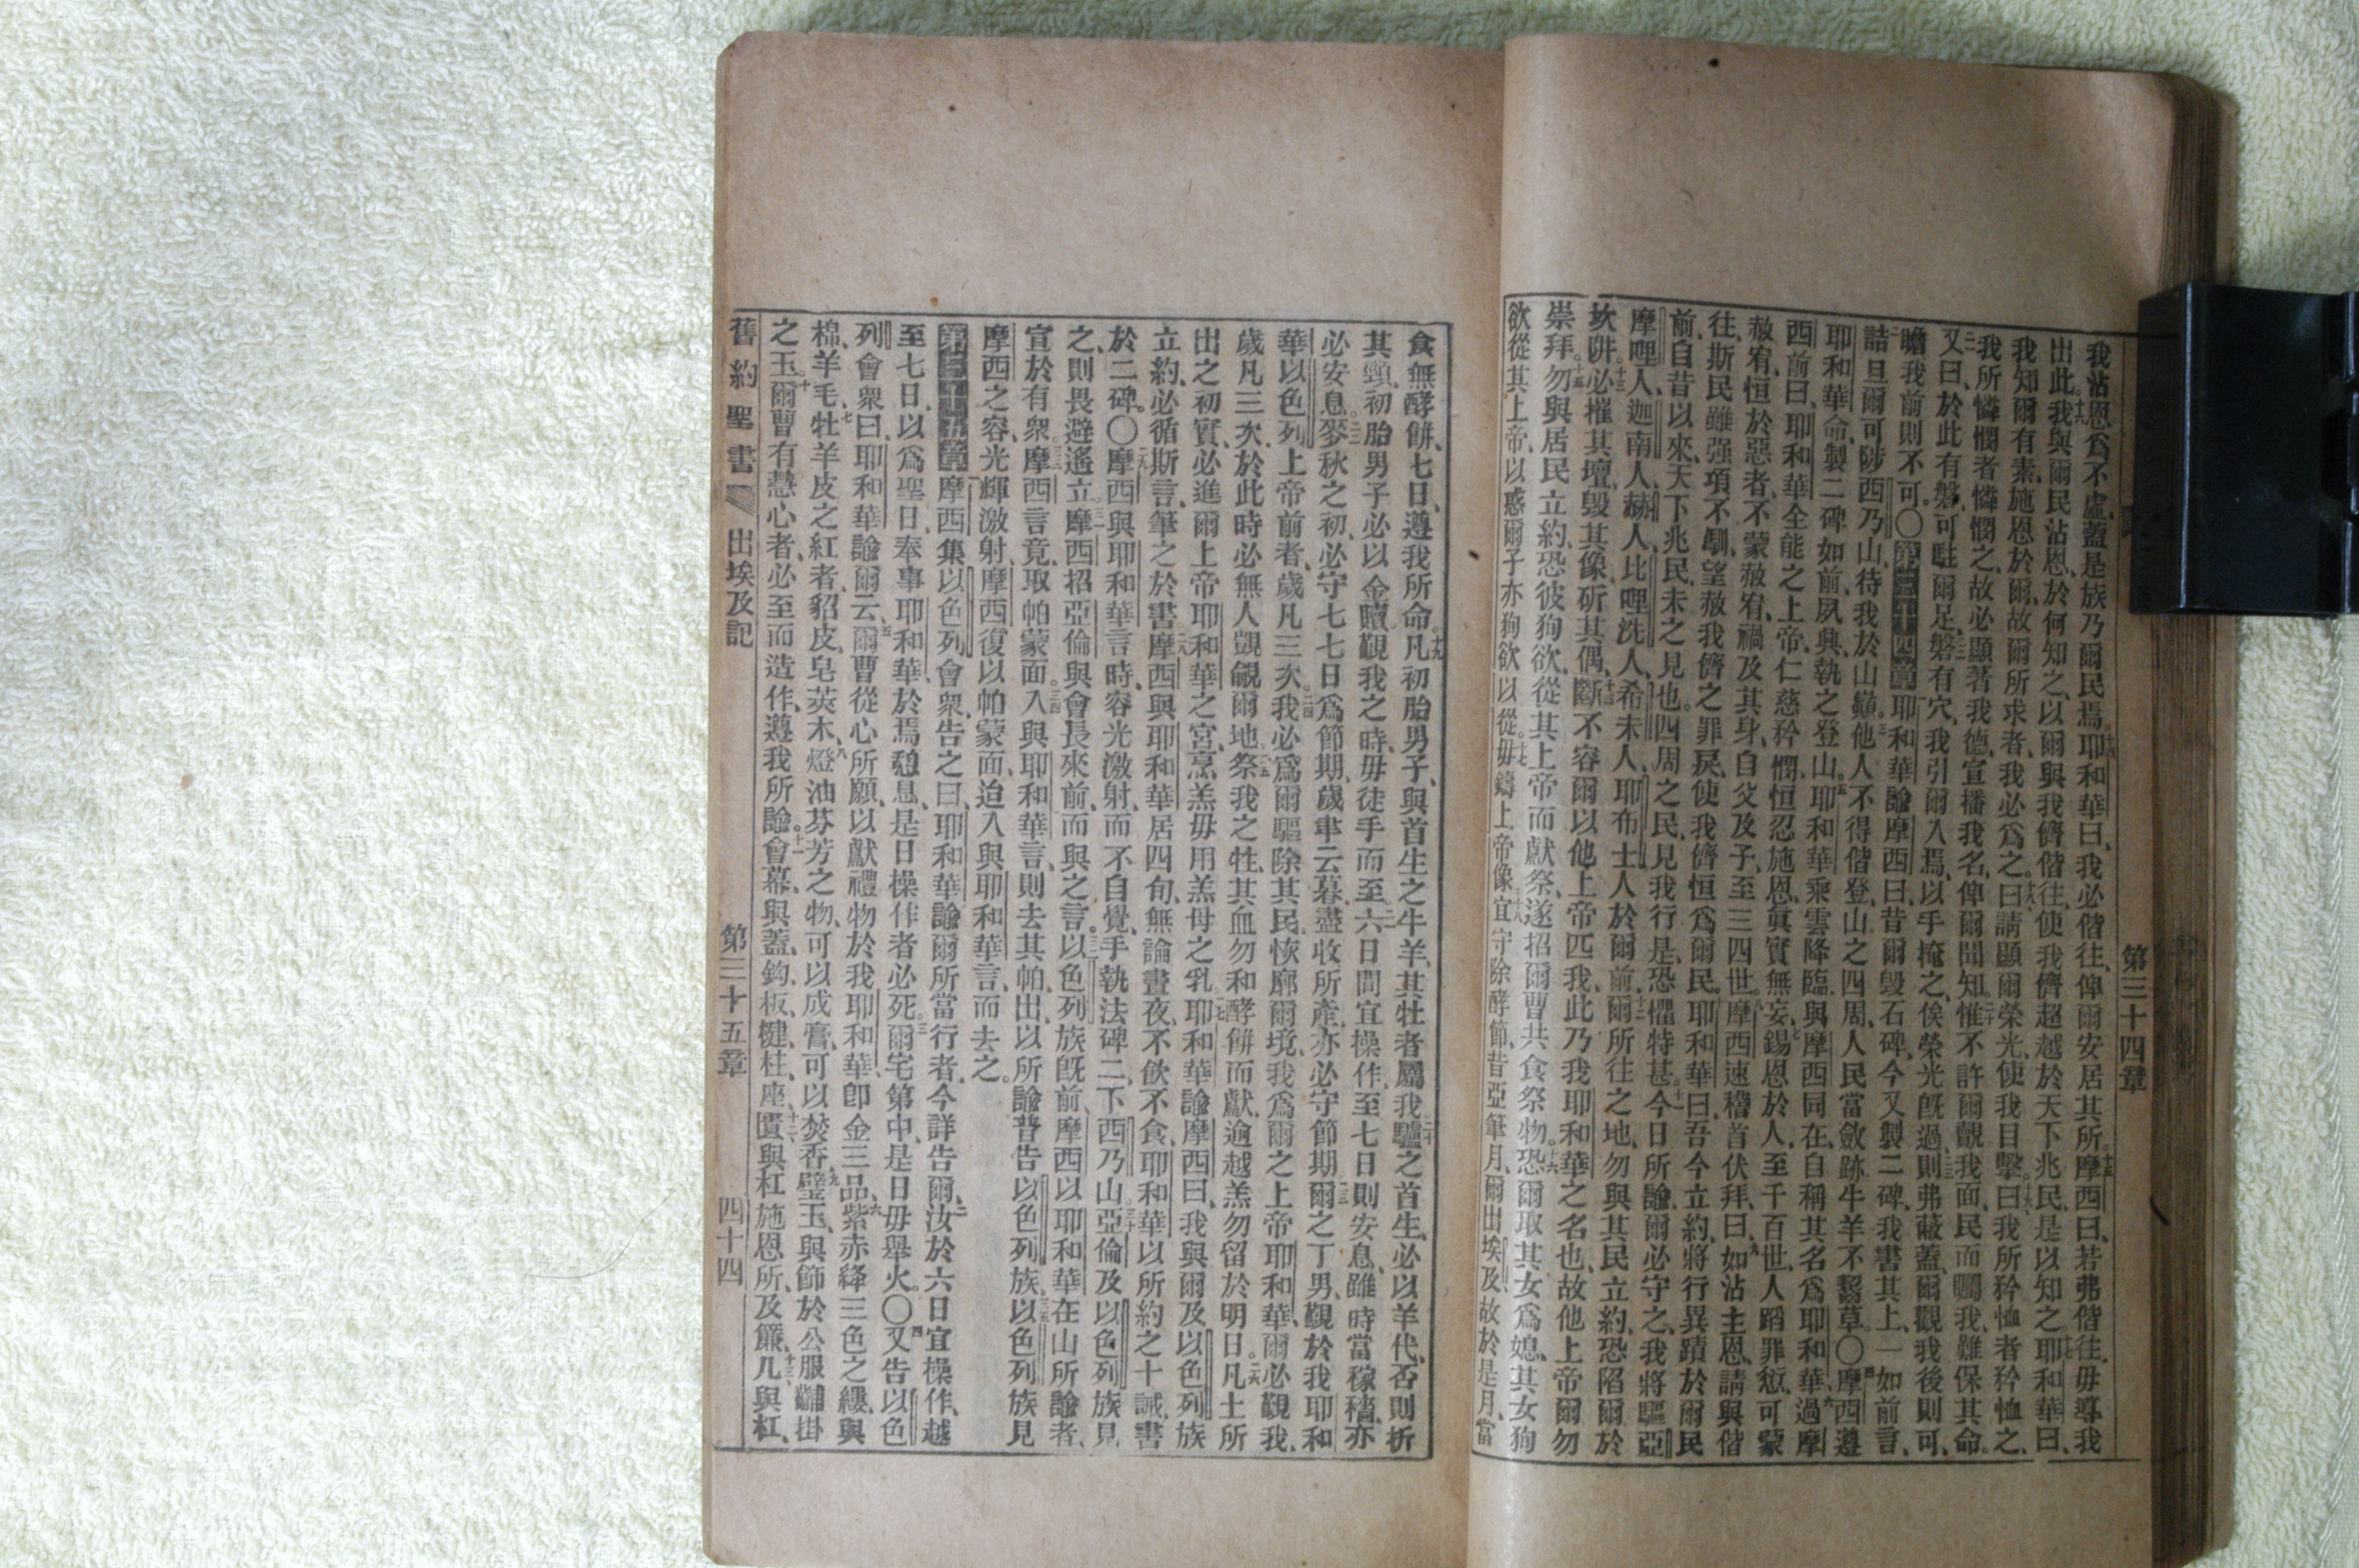 第三十四章
我沾恩爲不虛、蓋是族乃爾民焉。十四耶和華曰、我必偕往、俾爾安居其所。十五摩西曰、若弗偕往、毋導我
出此。十六我與爾民沾恩、於何知之、以爾與我儕偕往、使我儕超越於天下兆民、是以知之。十七耶和華曰、
我知爾有素、施恩於爾、故爾所求者、我必爲之。十八曰、請顯爾榮光、使我目擊。十九曰、我所矜恤者矜恤之、
我所憐憫者憐憫之、故必顯著我德、宣播我名、俾爾聞知。二十惟不許爾覿我面、民而矚我、難保其命。
二一又曰、於此有磐、可駐爾足、二二磐有穴、我引爾入焉、以手掩之、俟榮光旣過、二三則弗蔽蓋、爾觀我後則可、
瞻我前則不可。〇第三十四章一耶和華諭摩西曰、昔爾毀石碑、今又製二碑、我書其上、一如前言、
二詰旦爾可陟西乃山、待我於山巔。三他人不得偕登、山之四周、人民當斂跡、牛羊不齧草。〇四摩西遵
耶和華命、製二碑如前、夙興、執之登山。五耶和華乘雲降臨、與摩西同在、自稱其名爲耶和華。六過摩
西前曰、耶和華全能之上帝、仁慈矜憫、恒忍施恩、眞實無妄、七錫恩於人、至千百世、人蹈罪愆、可蒙
赦宥、恒於惡者、不蒙赦宥、禍及其身、自父及子、至三四世。八摩西速稽首伏拜曰、九如沾主恩、請與偕
往、斯民雖强項不馴、望赦我儕之罪戾、使我儕恒爲爾民。十耶和華曰、吾今立約、將行異蹟於爾民
前、自昔以來、天下兆民、未之見也。四周之民、見我行是、恐懼特甚。十一今日所諭、爾必守之、我將驅亞
摩哩人、迦南人、赫人、比哩洗人、希未人、耶布士人於爾前、十二爾所往之地、勿與其民立約、恐陷爾於
坎阱、十三必摧其壇、毀其像、斫其偶、十四斷不容爾以他上帝匹我、此乃我耶和華之名也、故他上帝爾勿
崇拜。十五勿與居民立約、恐彼狥欲、從其上帝而獻祭、遂招爾曹共食祭物。十六恐爾取其女爲媳、其女狥
欲從其上帝、以惑爾子亦狥欲以從。十七毋鑄上帝像。十八宜守除酵節、昔亞筆月、爾出埃及、故於是月、當
食無酵餅、七日、遵我所命。十九凡初胎男子、與首生之牛羊、其牡者屬我、二十驢之首生、必以羊代、否則折
其頸、初胎男子必以金贖、覲我之時、毋徒手而至。二一六日間宜操作、至七日則安息、雖時當稼穡、亦
必安息。二二麥秋之初、必守七七日爲節期、歲聿云暮、盡收所產、亦必守節期。二三爾之丁男、覲於我耶和
華以色列上帝前者、歲凡三次。二四我必爲爾驅除其民、恢廓爾境、我爲爾之上帝耶和華、爾必覲我、
歲凡三次、於此時必無人覬覦爾地。二五祭我之牲、其血勿和酵餅而獻、逾越羔勿留於明日。二六凡土所
出之初實、必進爾上帝耶和華之宮、烹羔毋用羔母之乳。二七耶和華諭摩西曰、我與爾及以色列族
立約、必循斯言、筆之於書。二八摩西與耶和華居四旬、無論晝夜、不飲不食、耶和華以所約之十誡、書
於二碑。〇二九摩西與耶和華言時、容光激射、而不自覺、手執法碑二、下西乃山。三十亞倫及以色列族見
之、則畏避遙立。三一摩西招亞倫與會長來前、而與之言。三二以色列族旣前、摩西以耶和華在山所諭者、
宣於有衆。三三摩西言竟、取帕蒙面。三四入與耶和華言、則去其帕、出以所諭、普吿以色列族。三五以色列族見
摩西之容、光輝激射、摩西復以帕蒙面、迨入與耶和華言、而去之。
第三十五章一摩西集以色列會衆、告之曰、耶和華諭爾所當行者、今詳告爾、二汝於六日宜操作、越
至七日、以爲聖日、奉事耶和華、於焉憩息、是日操作者必死。三爾宅第中、是日毋舉火。〇四又告以色
列會衆曰、耶和華諭爾云、五爾曹從心所願、以獻禮物於我耶和華、卽金三品、六紫赤絳三色之縷、與
棉、羊毛、七牡羊皮之紅者、貂皮、皂莢木、八燈油、芬芳之物、可以成膏、可以焚香、九璧玉、與飾於公服黼掛
之玉。十爾曹有慧心者、必至而造作、遵我所諭。十一會幕、與蓋、鈎、板、楗、柱、座、十二匱與杠、施恩所、及簾、十三几與杠、
舊約聖書 出埃及記 第三十五章 四十四